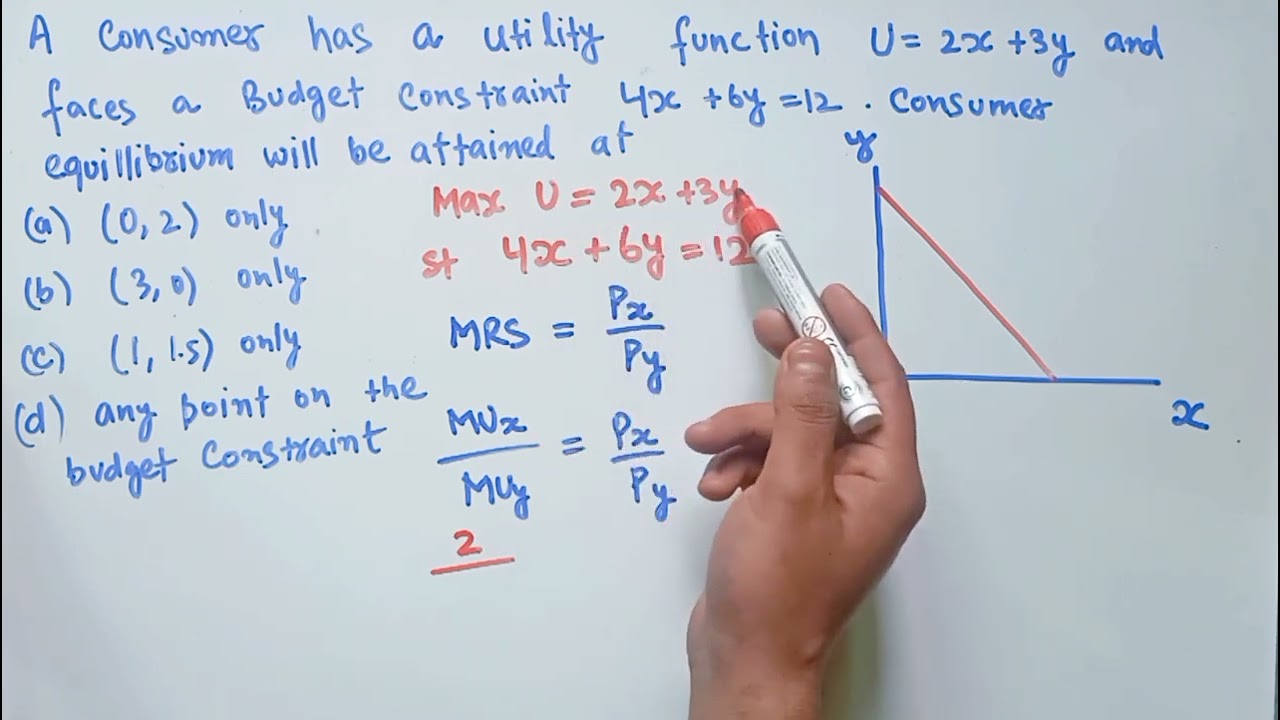 A Consumer has a utility function U = 2x + 3y and
faces a Budget Constraint 4x + 6y = 12 . Consumer
equillibrium will be attained at
(a) (0, 2) only
(b) (3, 0) only
(c) (1, 1.5) only
(d) any point on the
budget Constraint
Max U = 2x + 3y
st 4x + 6y = 12
MRS = Px / Py
MUx / MUy = Px / Py
2
y
x